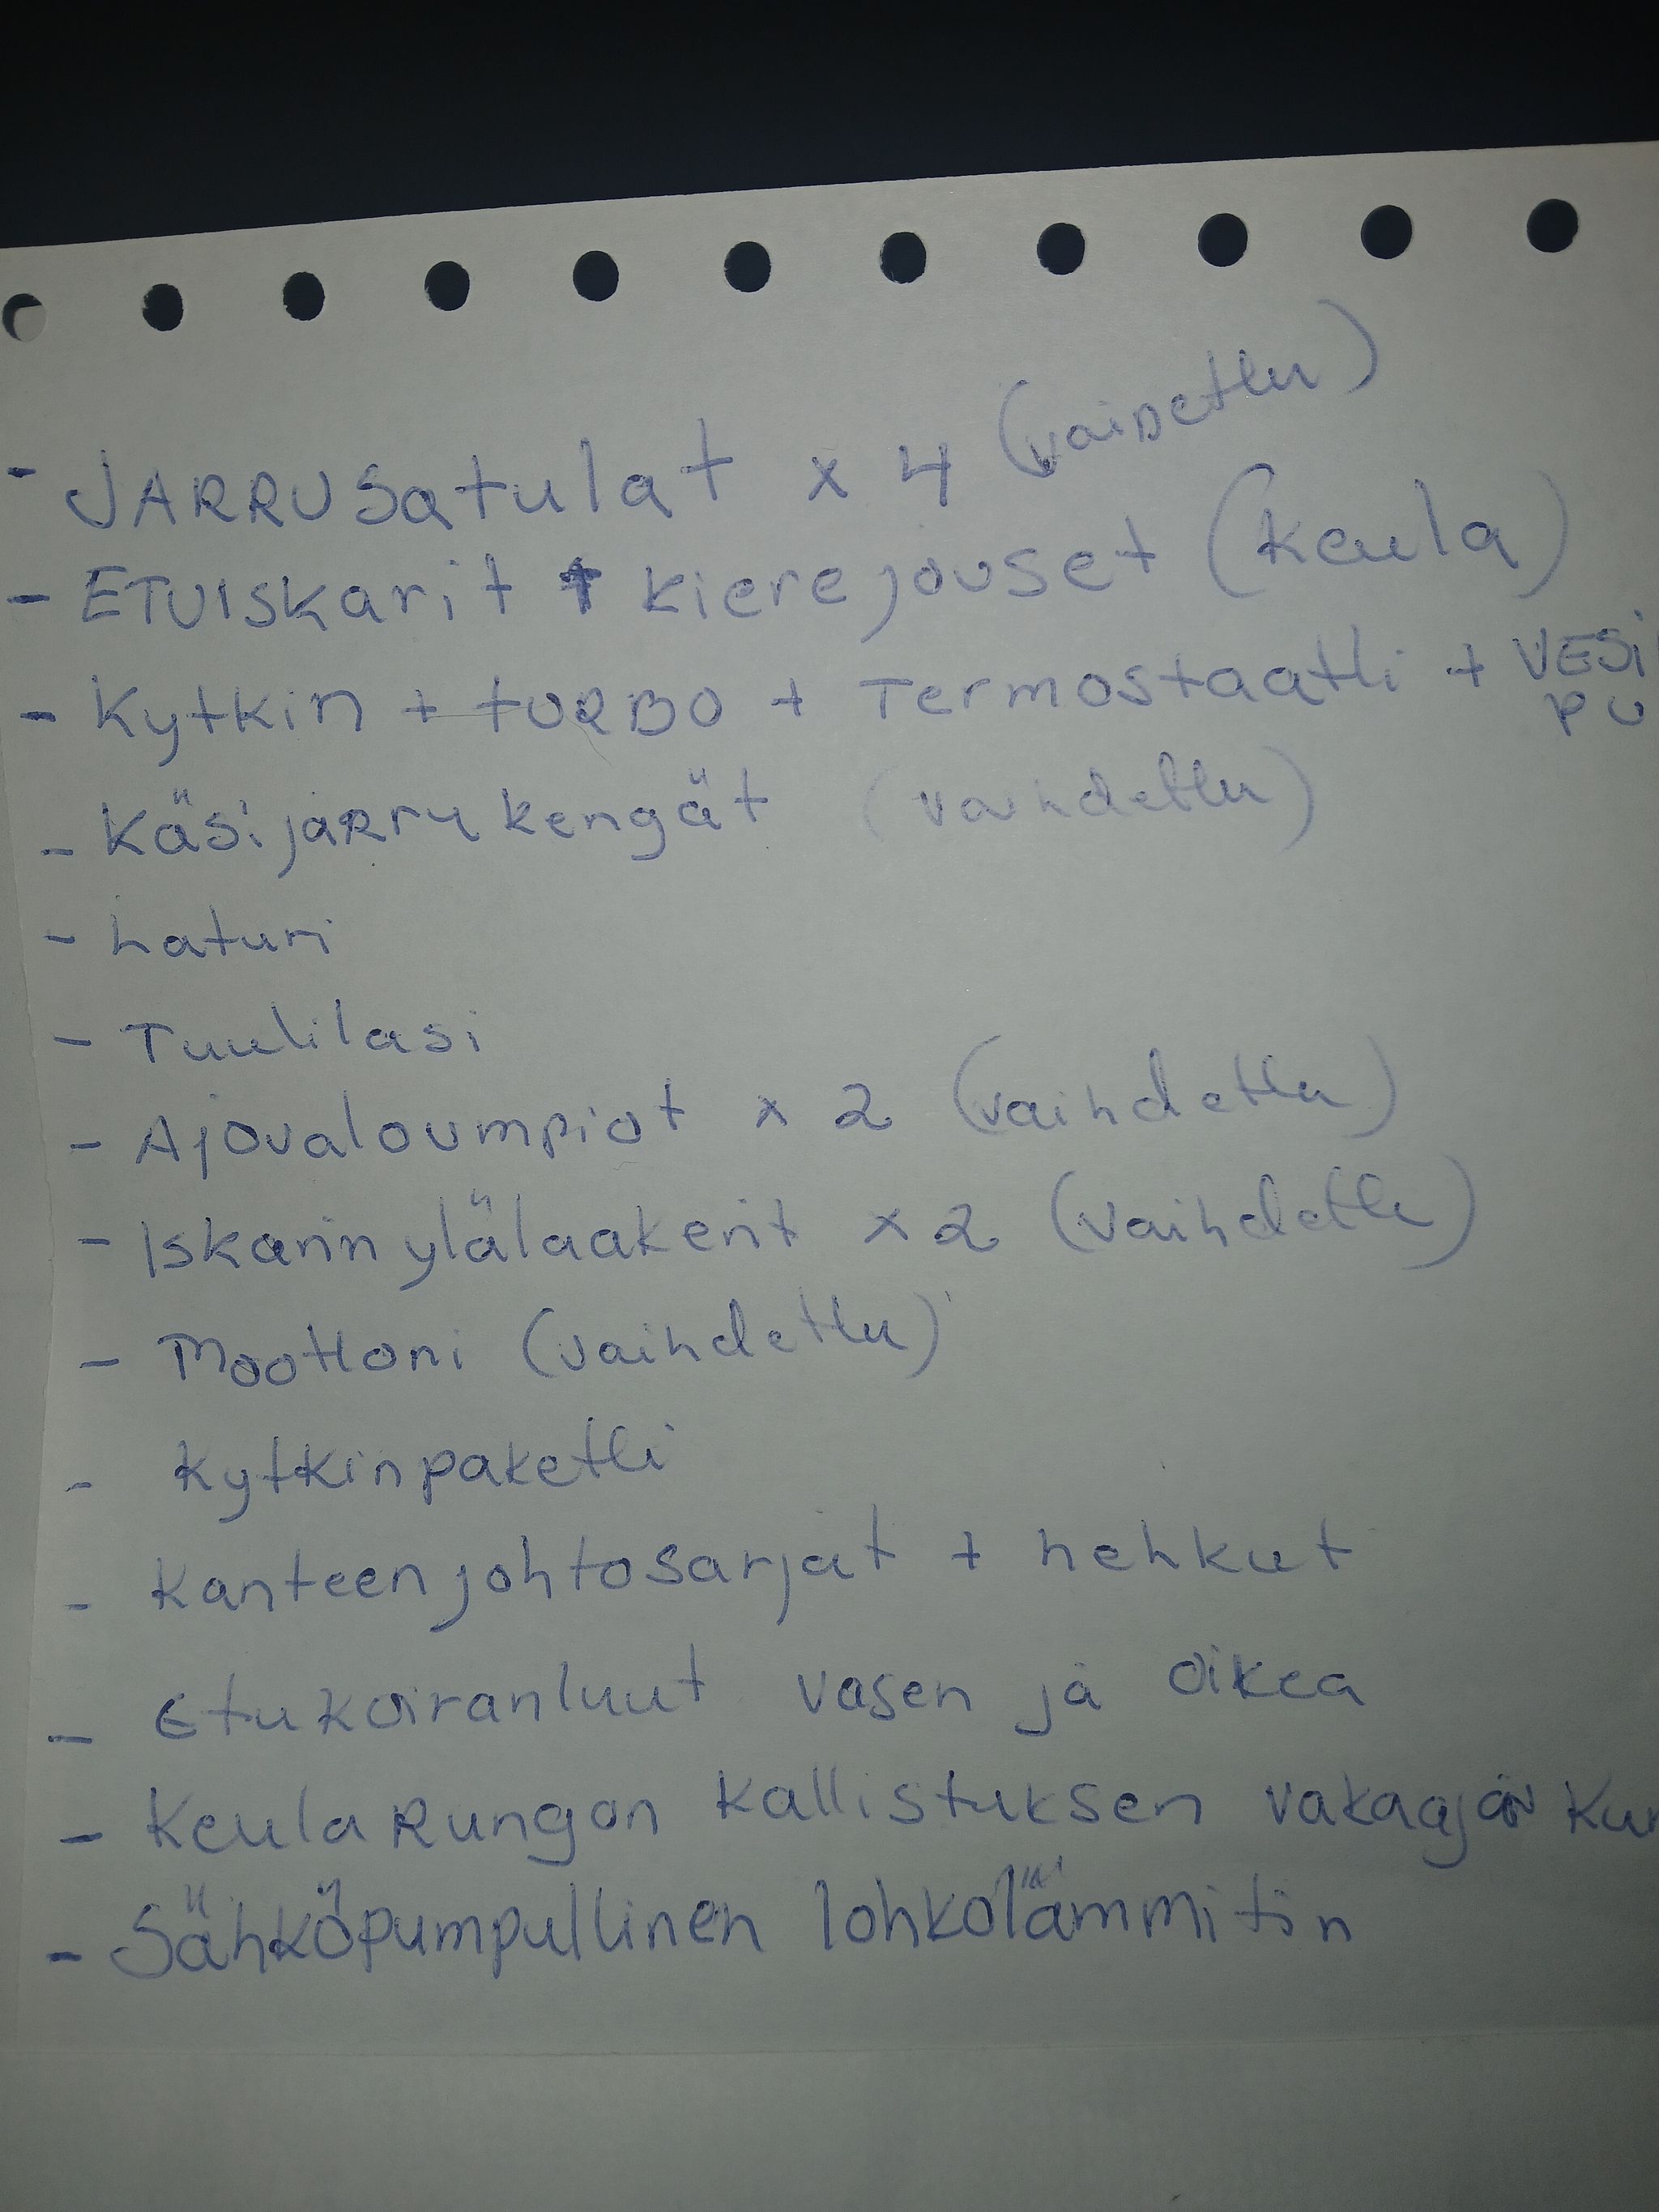 - JARRUSatulat x 4 (vaihdettu)
- ETUISkarit + kierejouset (keula)
- Kytkin + TURBO + Termostaatti + VESI
PU
- Käsijarrukengät (vaihdettu)
- Laturi
- Tuulilasi
- Ajovaloumpiot x 2 (vaihdettu)
- Iskarin ylälaakerit x 2 (vaihdettu)
- Moottori (vaihdettu)
- Kytkinpaketti
- Kanteen johtosarjat + hehkut
- Etukoiranluut vasen ja oikea
- Keula Rungon kallistuksen vakaajan Ku
- Sähköpumpullinen lohkolämmitin